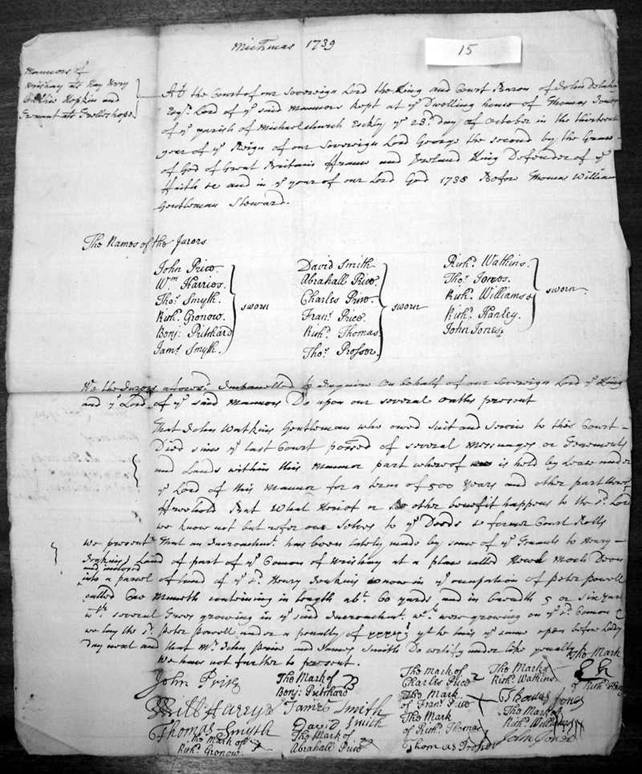 Michmas 1739
15
Mannors of
Urishay als Hay Urry
Hopkin and
At the Court of our Sovereign Lord the King and Court Baron of John
Esqr. Lord of ye said Mannors kept at ye Dwelling house of Thomas
of ye parish of Michaelchurch Eskley ye 28th day of October in the thirteenth
year of ye Reign of our Sovereign Lord George the second by the Grace
of God of Great Brittain France and Ireland King Defender of ye
Faith &c and in ye year of our Lord God 1738 Before Thomas William
Gentleman Steward.
The Names of the Jurors
John Price.
Wm Harries.
Thos. Smyth.
Richd. Gronow.
Benj: Pritchard
Jams. Smyth.
sworn
David Smith
Abrahall Price
Charles Price.
Frans. Price.
Richd. Thomas
Thos. Prosser.
sworn
Richd. Watkins.
Thos. Jones.
Richd. Williams
Richd. Hanley.
John Jones
sworn
We the Jurors aforesd. Impannelled to Inquire On behalf of our Sovereign Lord ye King
and ye Lord of ye said Mannors Do upon our several Oaths present
That John Watkins Gentleman who owed suit and service to this Court
Died since ye last Court possed of several Messuages or Tenements
and Lands within this Mannor part whereof is held by Lease under
ye Lord of this Mannor for a term of 500 years and other part thereof
Freehold But What Heriot or other benefit happens to the sd. Lord
we know not but refer our selves to ye Deeds & former Court Rolls
We present That an Incroachmt. has been lately made by some of ye Tenants to Henry
Jenkins Land of part of ye Comon of Urishay at a place called
and inclosed
into a parcel of land of ye sd. Henry Jenkins now in ye occupation of Peter Powell
called Cae containing in length abt. 60 yards and in breadth 5 or six yards
wth. several trees growing in ye said Incroachmt. wch. were growing on ye sd. Comon &
we lay the sd. Peter Powell under a penalty of yt he lais ye same open before Lady
day next and that Mr. John Price and James Smith Do certify under like penalty
We have not further to present.
John Price
The Mark of
Benj: Pritchard
The mark of
Charles Price
The Mark of
Richd. Watkins
The Mark
of Richd.
Will Hareys
James Smith
The Mark
of Frans. Price
Thomas Jones
Thomas Smyth
David Smith
The Mark
of Richd. Thomas
The Mark of
Richd. Williams
The Mark of
Richd. Gronow.
The Mark of
Abrahall Price
Thomas Prosser
John Jones